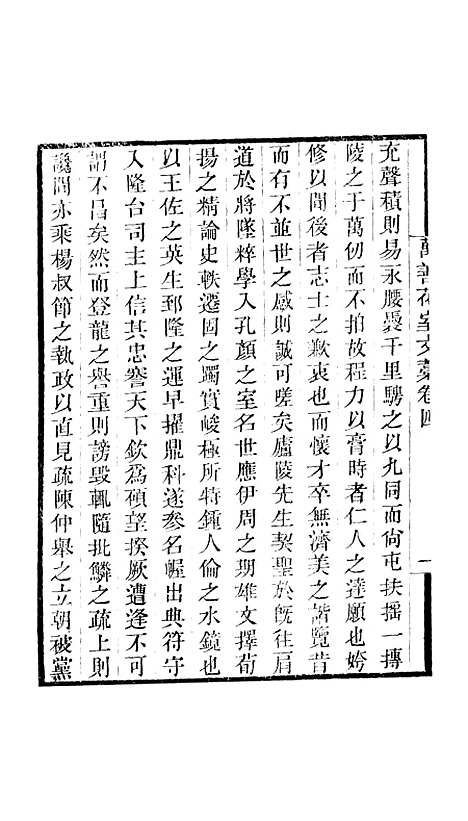 萬善花室文藁卷四 一
充聲積則易永腰褭千里騁之以九同而尙屯扶搖一摶
陵之于萬仞而不拍故程力以膏時者仁人之達願也姱
修以間後者志士之歉衷也而懷才卒無濟美之諧覽昔
而有不並世之感則誠可嗟矣廬陵先生契聖於旣往肩
道於將墜粹學入孔顏之室名世應伊周之期雄文擇荀
揚之精論史軼遷固之躅實峻極所特鍾人倫之水鏡也
以王佐之英生郅隆之運早擢鼎科遂參名幄出典符守
入隆台司主上信其忠謇天下欽爲碩望揆厥遭逢不可
謂不昌矣然而登龍之譽重則謗毀輒隨批鱗之疏上則
讒閒亦乘楊叔節之執政以直見疏陳仲舉之立朝被黨